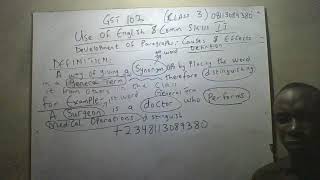 GST 102 (CLASS 3) 08113089380
Use Of English & Comm Skills II
Development of Paragraphs: Causes & Effects
Definition
word
DEFINITION:
A way of giving a Synonym OR by placing the word
in a General Term, therefore distinguishing
it from others in the Class
for Example, 1st word General Term
A Surgeon is a doctor who Performs
Medical Operations distinguish
+2348113089380